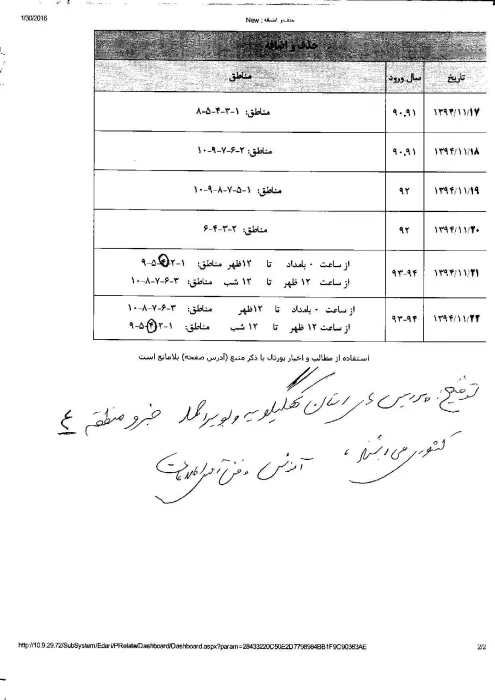 1/30/2016
حذف و اضافه : New
حذف و اضافه
تاریخ سال ورود مناطق
۱۳۹۴/۱۱/۱۷ ۹۰،۹۱ مناطق: ۱-۳-۴-۵-۸
۱۳۹۴/۱۱/۱۸ ۹۰،۹۱ مناطق: ۲-۶-۷-۹-۱۰
۱۳۹۴/۱۱/۱۹ ۹۲ مناطق: ۱-۵-۷-۸-۹-۱۰
۱۳۹۴/۱۱/۲۰ ۹۲ مناطق: ۲-۳-۴-۶
۱۳۹۴/۱۱/۲۱ ۹۳-۹۴ از ساعت ۰ بامداد تا ۱۲ظهر مناطق: ۱-۲-۴-۵-۹
از ساعت ۱۲ ظهر تا ۱۲ شب مناطق: ۳-۶-۷-۸-۱۰
۱۳۹۴/۱۱/۲۲ ۹۳-۹۴ از ساعت ۰ بامداد تا ۱۲ظهر مناطق: ۳-۶-۷-۸-۱۰
از ساعت ۱۲ ظهر تا ۱۲ شب مناطق: ۱-۲-۴-۵-۹
استفاده از مطالب و اخبار پورتال با ذکر منبع (آدرس صفحه) بلامانع است
توضیح: پردیس های استان کهگیلویه و بویراحمد جزو منطقه ۴
کشوری می باشند،
http://10.9.29.72/SubSystem/Edari/PRelate/Dashboard/Dashboard.aspx?param=28433220C50E2D7798984BB1F9C90363AE
2/2